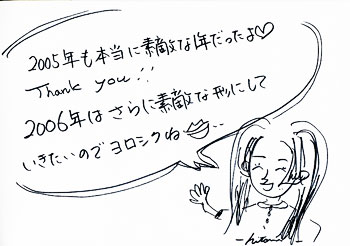 2005年も本当に素敵な1年だったよ♡
Thank you!!
2006年はさらに素敵な形にして
いきたいのでヨロシクね